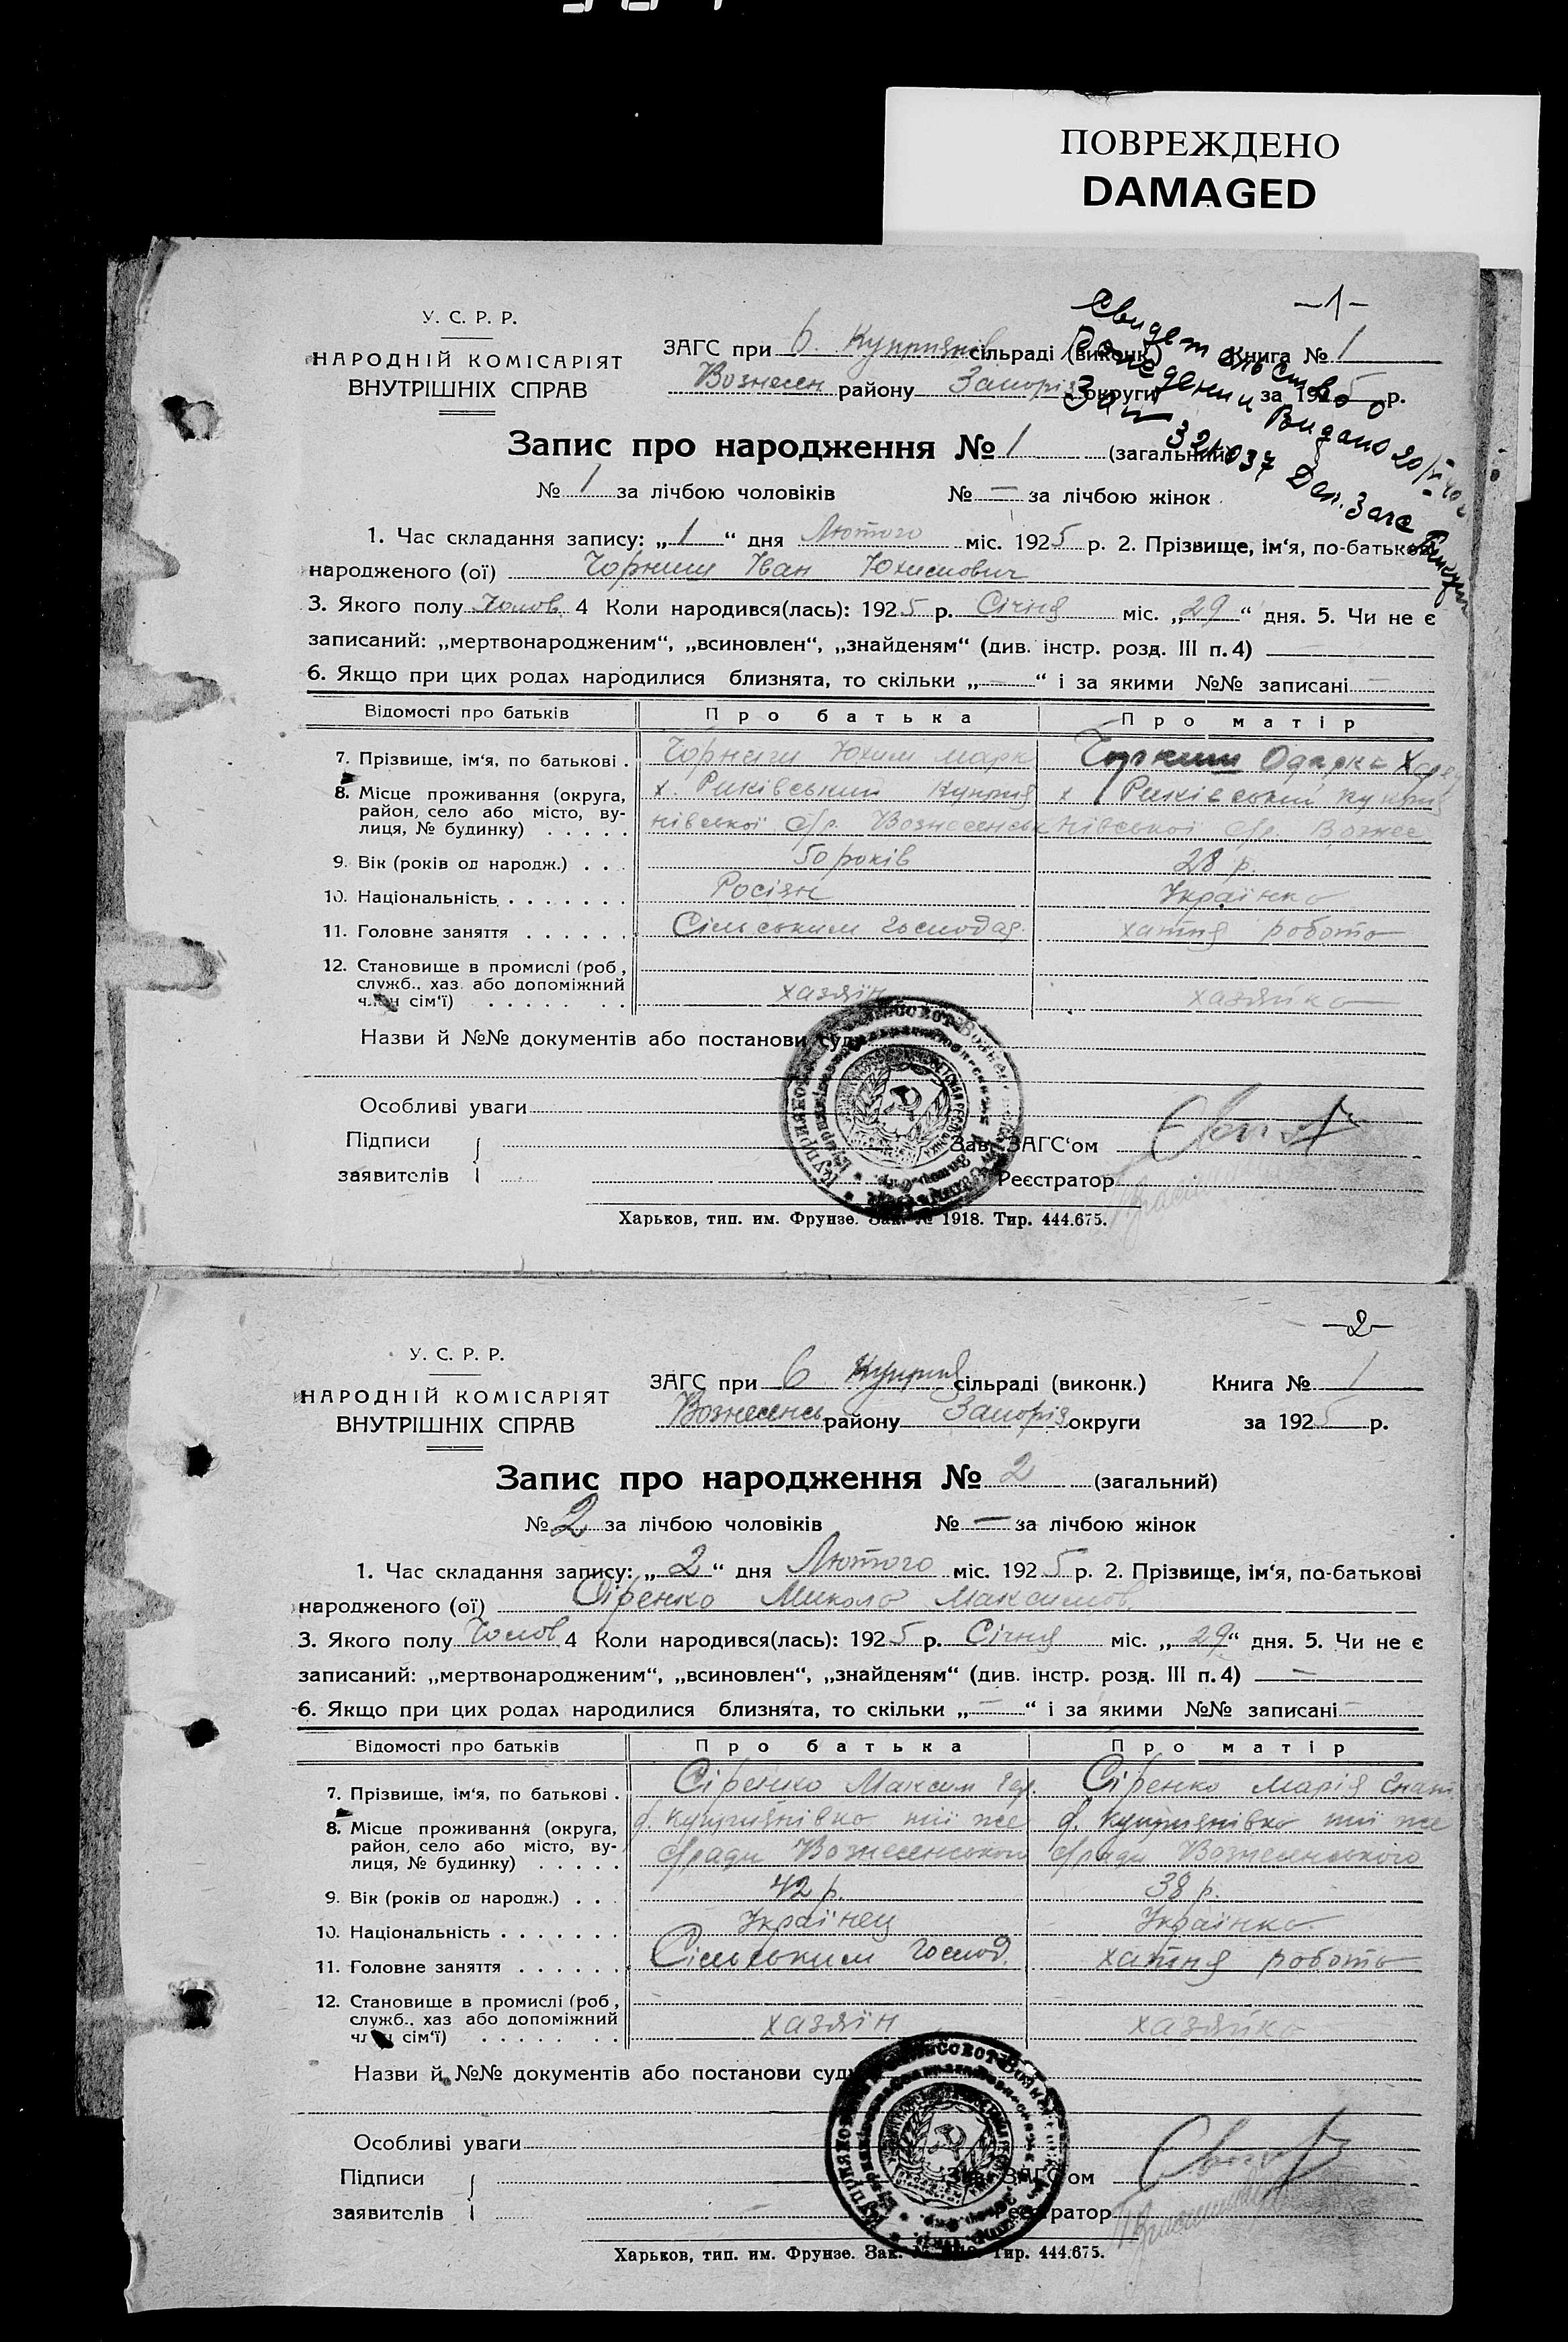 ПОВРЕЖДЕНО
DAMAGED
—1—
У. С. Р. Р.
НАРОДНІЙ КОМІСАРІЯТ
ВНУТРІШНІХ СПРАВ
ЗАГС при сільраді (виконк.) Книга № 1
Вознесен району Запоріз округи за 1925 р.
Свидетельство о
Рождении Видано
321037
Запис про народження № 1 (загальний)
№ 1 за лічбою чоловіків № — за лічбою жінок
1. Час складання запису: „ 1 “ дня Лютого міс. 1925 р. 2. Прізвище, ім‘я, по-батькові
народженого (ої) Чорниш Іван Юхимович
3. Якого полу Чолов. 4 Коли народився(лась): 1925 р. Січня міс. „ 29 “ дня. 5. Чи не є
записаний: „мертвонародженим“, „всиновлен“, „знайденям“ (див. інстр. розд. III п. 4) —
6. Якщо при цих родах народилися близнята, то скільки „ — “ і за якими №№ записані —
Відомості про батьків Про батька Про матір
7. Прізвище, ім‘я, по батькові . Чорниш Юхим Марк Чорниш Одарка
8. Місце проживання (округа, х. Риківський Куприя х Риківський Куприя
район, село або місто, ву- нівської с/р. Вознесенськ нівської с/р. Вознес
лиця, № будинку) . . . . .
9. Вік (років од народж.) . . . 50 років 28 р.
10. Національність . . . . . . . Росіян Українка
11. Головне заняття . . . . . . Сільським господар. хатня робота
12. Становище в промислі (роб.,
служб., хаз. або допоміжний
член сім‘ї) . . . . . . . хазяїн хазяйка
Назви й №№ документів або постанови суду
Особливі уваги
Підписи Зав. ЗАГС‘ом
заявителів Реєстратор
Харьков, тип. им. Фрунзе. Зак. № 1918. Тир. 444.675.
—2—
У. С. Р. Р.
НАРОДНІЙ КОМІСАРІЯТ
ВНУТРІШНІХ СПРАВ
ЗАГС при сільраді (виконк.) Книга № 1
Вознесенс району Запоріз округи за 1925 р.
Запис про народження № 2 (загальний)
№ 2 за лічбою чоловіків № — за лічбою жінок
1. Час складання запису: „ 2 “ дня Лютого міс. 1925 р. 2. Прізвище, ім‘я, по-батькові
народженого (ої) Сіренко Микола Максимов.
3. Якого полу Чолов 4 Коли народився(лась): 1925 р. Січня міс. „ 29 “ дня. 5. Чи не є
записаний: „мертвонародженим“, „всиновлен“, „знайденям“ (див. інстр. розд. III п. 4) —
6. Якщо при цих родах народилися близнята, то скільки „ — “ і за якими №№ записані —
Відомості про батьків Про батька Про матір
7. Прізвище, ім‘я, по батькові . Сіренко Максим Сіренко Марія
8. Місце проживання (округа, Купріянівка тії же Купріянівка тії же
район, село або місто, ву- с/ради Вознесенського с/ради Вознесенського
лиця, № будинку) . . . . .
9. Вік (років од народж.) . . . 42 р. 38 р.
10. Національність . . . . . . . Українец Українка
11. Головне заняття . . . . . . Сільським господ. хатня робота
12. Становище в промислі (роб.,
служб., хаз або допоміжний
член сім‘ї) . . . . . . . хазяїн хазяйка
Назви й №№ документів або постанови суду
Особливі уваги
Підписи Зав. ЗАГС‘ом
заявителів Реєстратор
Харьков, тип. им. Фрунзе. Зак. № 1918. Тир. 444.675.